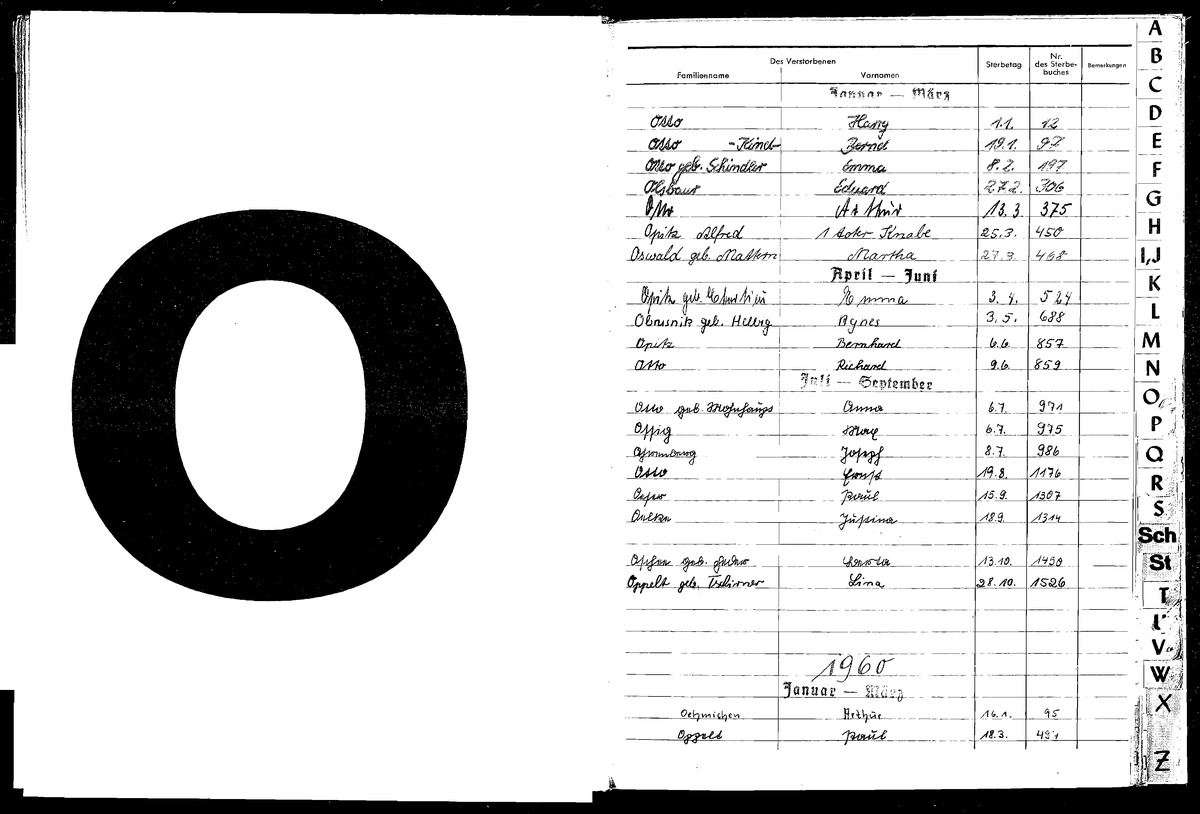 O
Des Verstorbenen
Familienname Vornamen Sterbetag Nr. des Sterbe-buches Bemerkungen
Januar — März
Otto Harry 1.1. 12
Otto -Kind- Bernd 19.1. 97
Otto geb. Schindler Emma 8.2. 197
Eduard 27.2. 306
Otto Arthur 13.3. 375
Opitz Alfred 1 toter Knabe 25.3. 450
Oswald geb. Martha 27.3. 468
April — Juni
Opitz geb. Emma 3.4. 524
Obrusnik geb. Hellwig Agnes 3.5. 688
Opitz Bernhard 6.6. 857
Otto Richard 9.6. 859
Juli — September
Otto geb. Anna 6.7. 971
Max 6.7. 975
Joseph 8.7. 986
Otto Ernst 19.8. 1176
Paul 15.9. 1307
18.9. 1314
geb. 13.10. 1450
Oppelt geb. Tschirner Lina 28.10. 1526
1960
Januar — März
Oehmichen Arthur 16.1. 95
Oppelt Paul 18.3.
A
B
C
D
E
F
G
H
I,J
K
L
M
N
O
P
Q
R
S
Sch
St
T
V
W
X
Z